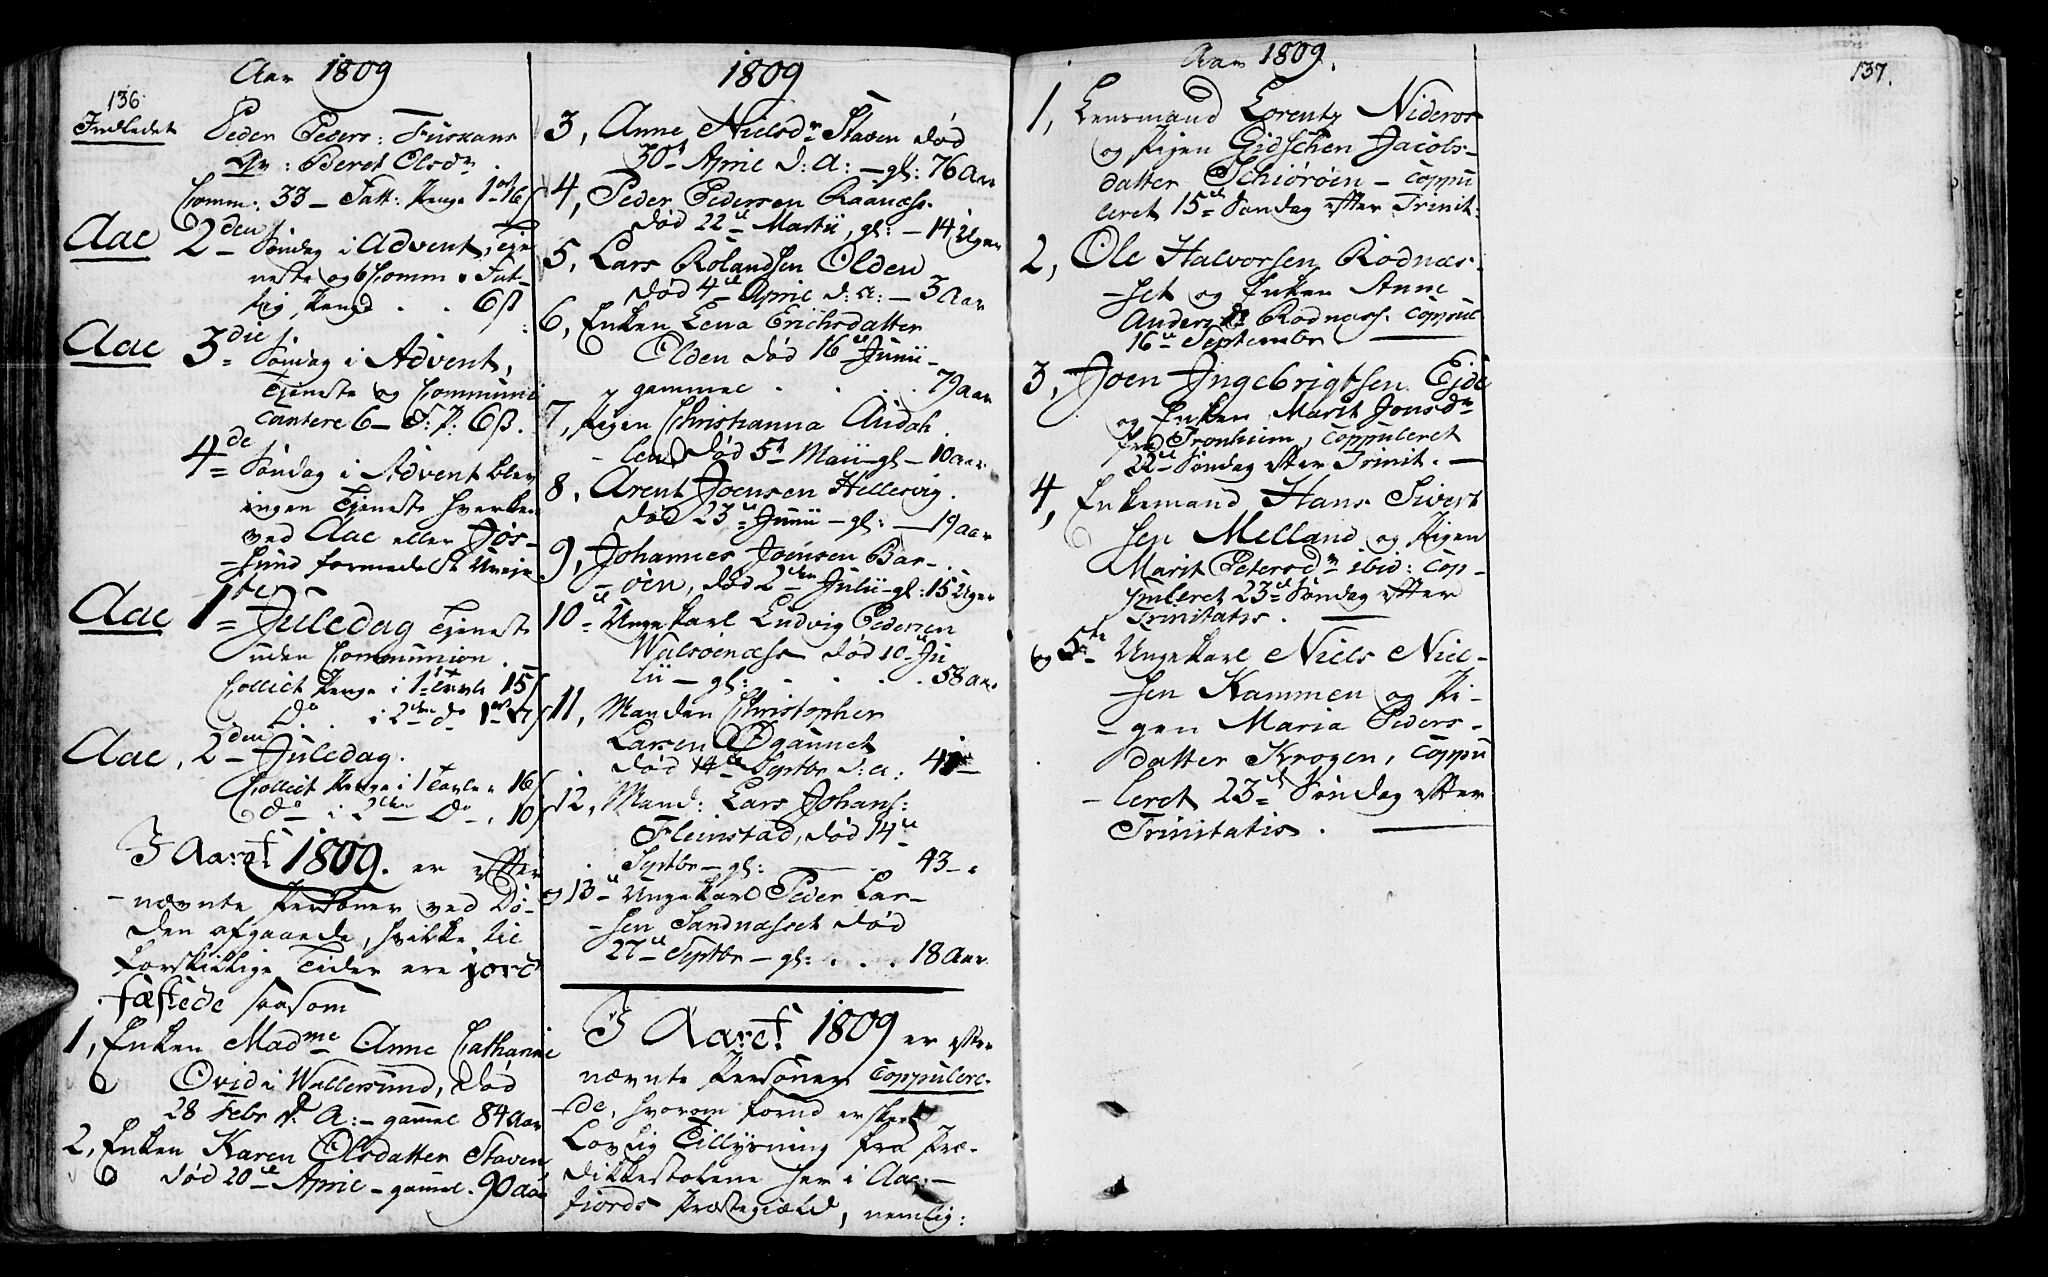 136.
Aar 1809
Indledet Peder Peders: Fuskans
Qv: Beret Olsdr.
Comm: 33 – Fatt: Penge 1 ort 16 ß
Aae 2den Søndag i Advent, Tje
neste og 6 Comm. Fat-
tig Penge . . 6 ß
Aae 3die Søndag i Advent,
Tjeneste og Communi
cantere 6 – F: P. 6 ß.
4de Søndag i Advent blev
ingen Tjeneste hverken
ved Aae eller Jøs-
sund formedelst Uveir
Aae 1te Juledag Tjeneste
uden Communion.
Collect Penge i 1te Tavle 15 ß
Do . i 2den do 1 ort
Aae, 2den Juledag.
Collect Penge i 1 Tavle 16 ß
Do i 2den Do. 10 ß
I Aaret 1809. er efter
nævnte Personer ved Dø-
den afgaaede, hvilke til
forskiellige Tider ere jord
fæstede saasom
1, Enken Madme Anne Cathariné
Ovid i Wallersund, død
28 Febr d. A: – gamel 84 Aar
2, Enken Karen Olsdatter Staven
død 20de April – gamel. 90 Aar
1809
3, Anne Nielsdr Staven død
30te April d: A: – gl: 76 Aar
4, Peder Pedersen Raanæss.
død 22de Martii, gl: – 14 Uger
5, Lars Rolandsen Olden
død 4de April d: a: – 3 Aar
6, Enken Lena Erichsdatter
Olden død 16de Junii –
gammel . . . . 79 Aar
7, Pigen Christianna Audah
len død 5te Maii – gl – 10 Aar
8, Arent Joensen Hellesvig.
død 23de Junii – gl: – 19 Aar
9, Johannes Joensen Bar-
øen, død 2den Julii – gl: 15 Uger
10de Ungekarl Ludvig Pedersen
Walsøenæss død 10de Ju
lii – gl: . . . . 58 Aar
11, Manden Christopher
Larsen Øgaunet
død 14de Septbr d: a: 41 –
12, Mand: Lars Johans:
Fleinstad, død 14de
Septbr – gl: . . 43 –
og 13de Ungekarl Peder Lar-
sen Sandnæsset død
27de Septbr – gl: . . . 18 Aar
I Aaret 1809 er efter
nævnte Personer Coppulere-
de, hvorom forud er skeet
Lovlig Tillysning fra Præ-
dikkestolene her i Aae-
fjords Præstegiæld, nemlig:
Aar 1809.
1, Lensmand Lorentz Nideros
og Pigen Gidschen Jacobs-
datter Schiørøen – Coppu
leret 15de Søndag efter Trinit:
2, Ole Halvorsen Rødnæs-
set og Enken Anne
Anders dr Rødnæss. Coppul
16de Septembr
3, Joen Ingebrigtsen Eide
og Enken Marit Jonsdr
fra Tronhiem, Coppuleret
22de Søndag efter Trinit. –
4, Enkemand Hans Sivert
sen Melland og Pigen
Marit Petersdr ibid: Cop-
puleret 23de Søndag efter
Trinitatis.
og 5te Ungekarl Niels Niel-
sen Kammen og Pi-
gen Maria Peders-
datter Krogen, Coppu
leret 23de Søndag efter
Trinitatis.
137.